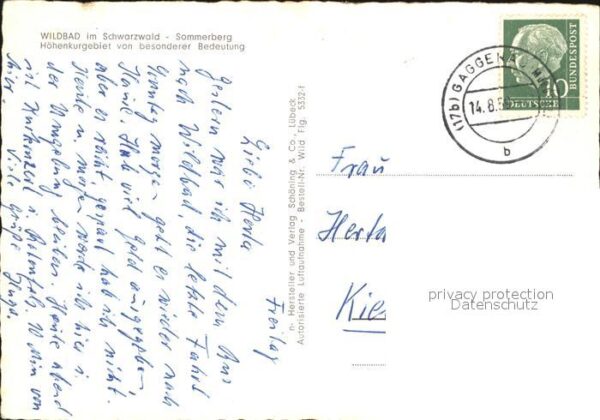 WILDBAD im Schwarzwald - Sommerberg
Höhenkurgebiet von besonderer Bedeutung
Freitag
Liebe Herta
Gestern war ich mit dem Bus
nach Wildbad, die letzte Fahrt
Sonntag morgen geht es wieder nach
Hause. Hab viel Geld ausgegeben,
aber es reicht, gespart hab ich nicht.
Heute u. morgen werde ich hier i.
der Umgebung bleiben. Heute abend
ist Kurkonzert i.
hier. Viele Grüße Inge.
n- Hersteller und Verlag Schöning & Co., Lübeck
Autorisierte Luftaufnahme - Bestell-Nr. Wild Flg. 5332-f
(17b) GAGGENAU
14.8.5
b
10
DEUTSCHE
BUNDESPOST
Frau
Herta
Kie
privacy protection
Datenschutz